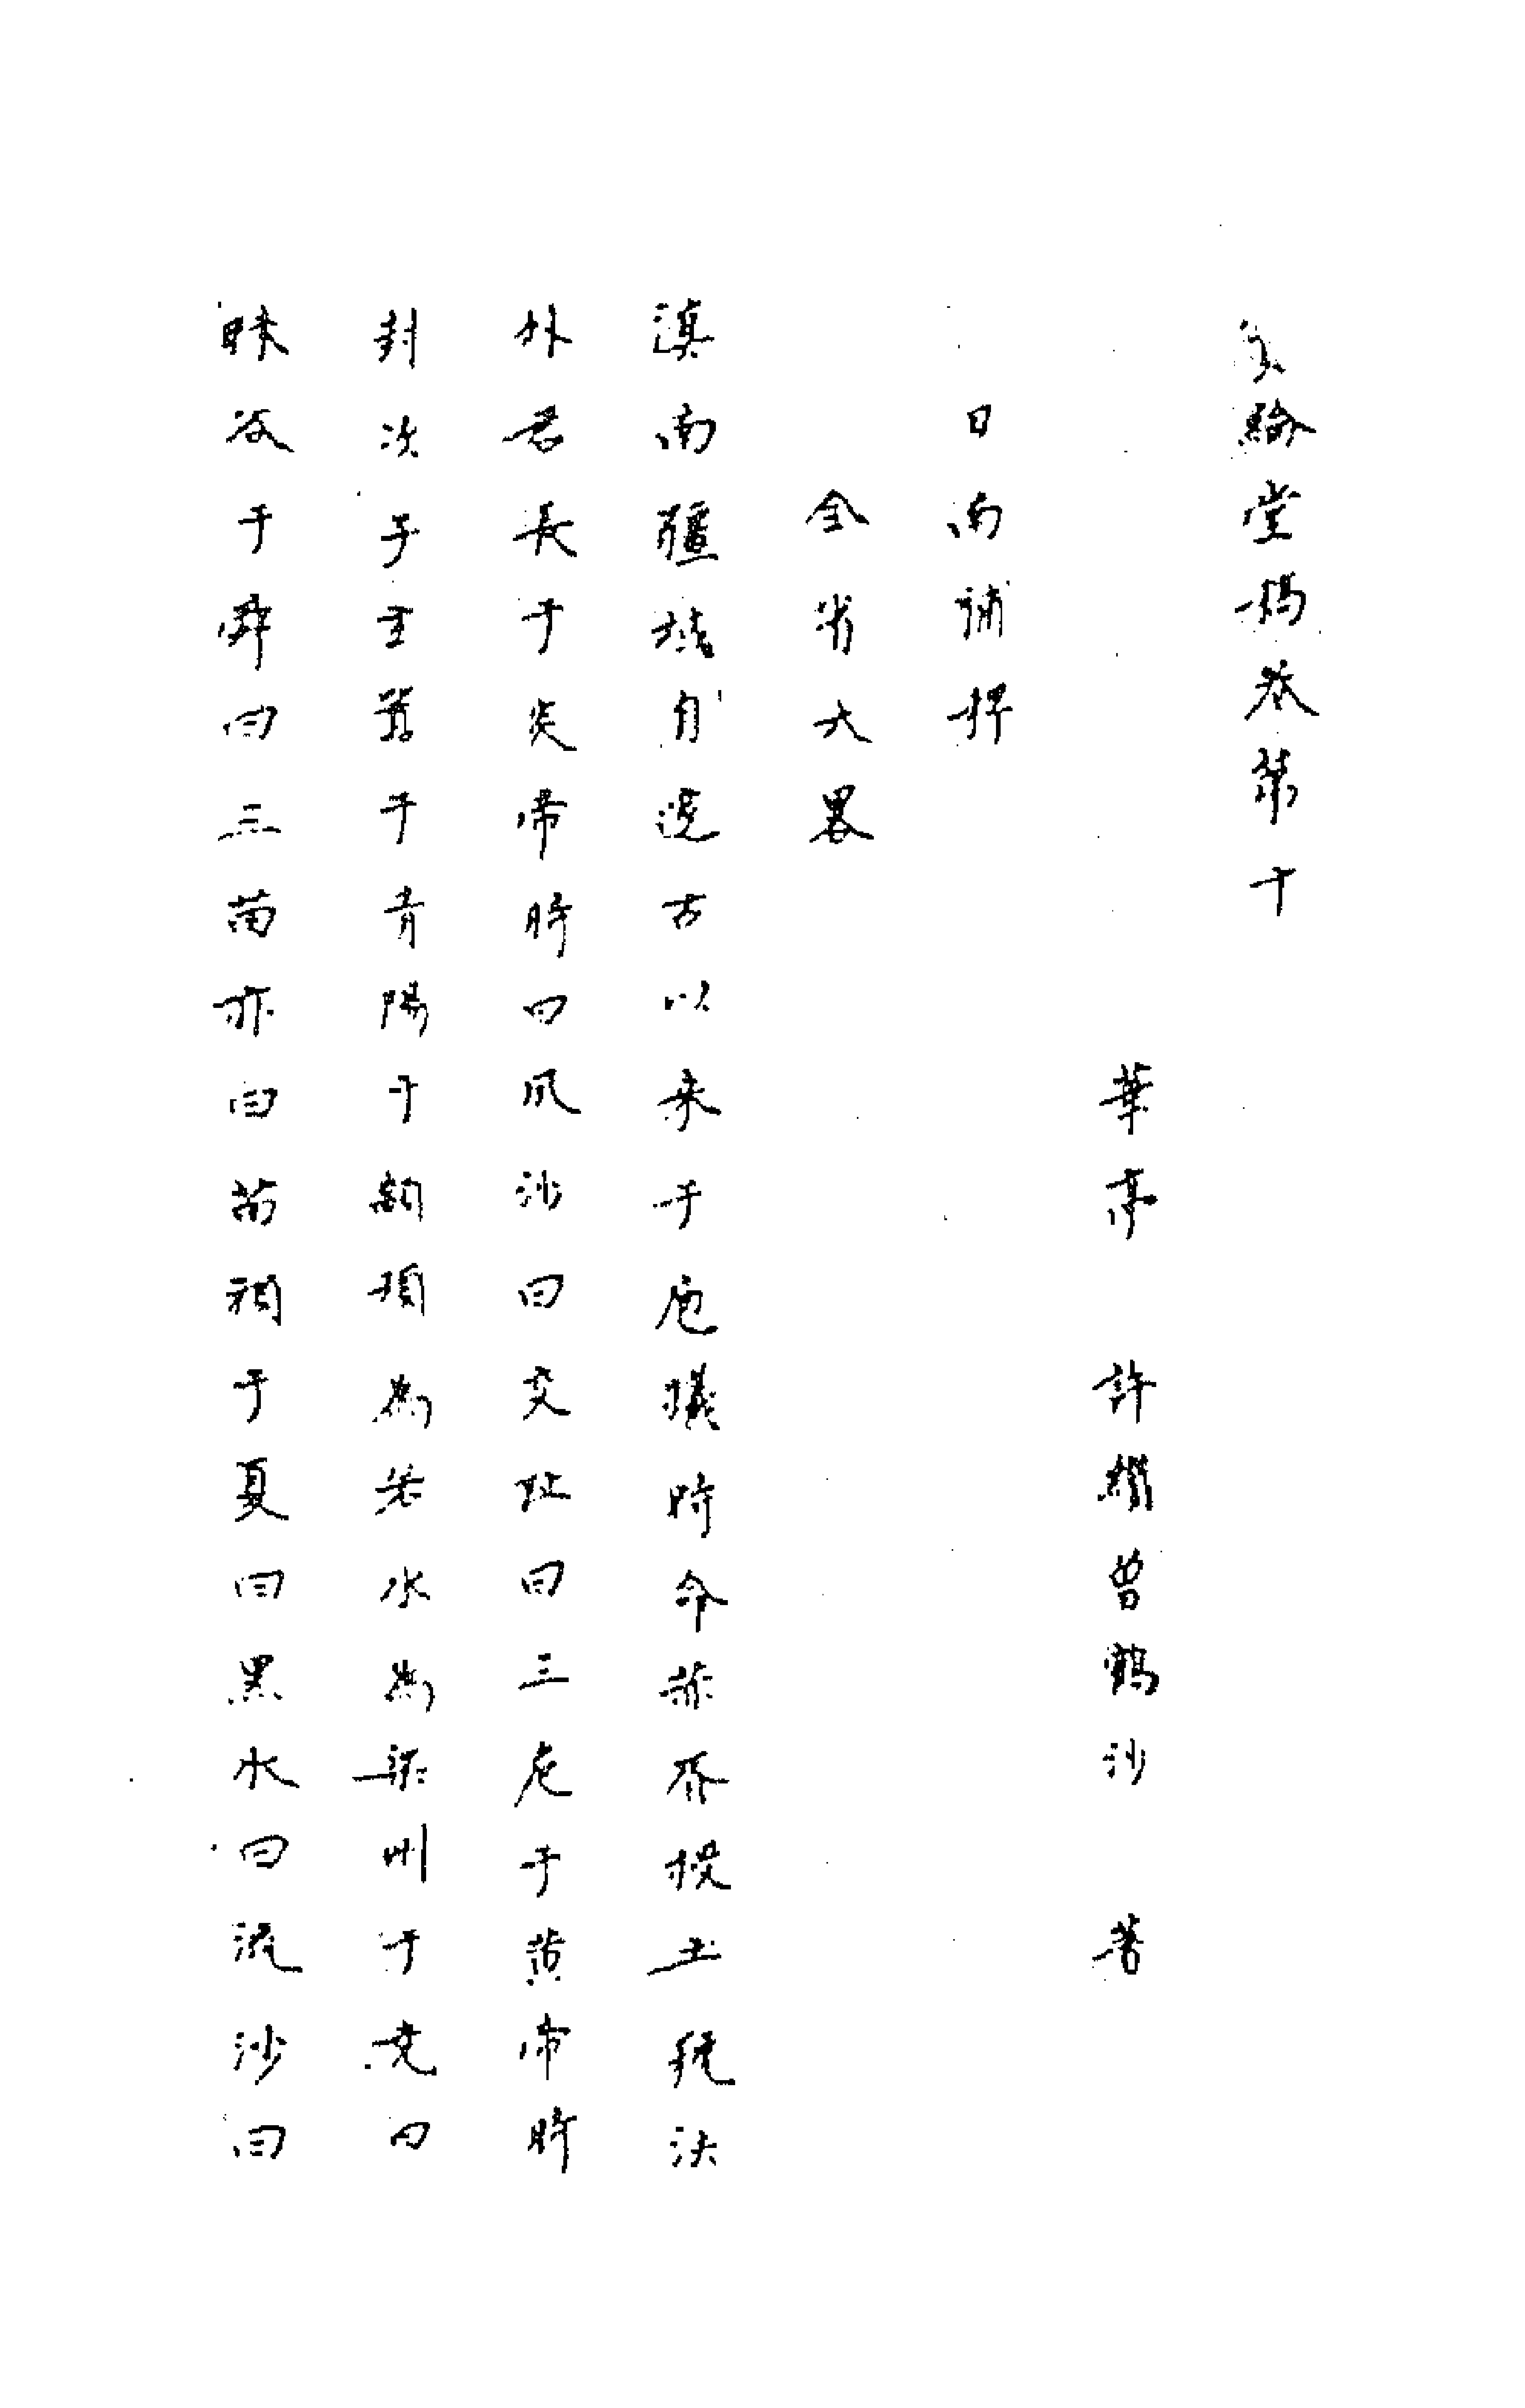 綸堂稿卷第十
華亭 許纘曾鶴沙 著
日南補稗
全省大畧
滇南疆域自邃古以来于庖犧時命赤奮授土統決
外君長于炎帝時曰夙沙曰交趾曰三危于黄帝時
封次子玄囂于青陽于顓頊為若水為梁州于堯曰
昧谷于舜曰三苗亦曰苗裔于夏曰黑水曰流沙曰